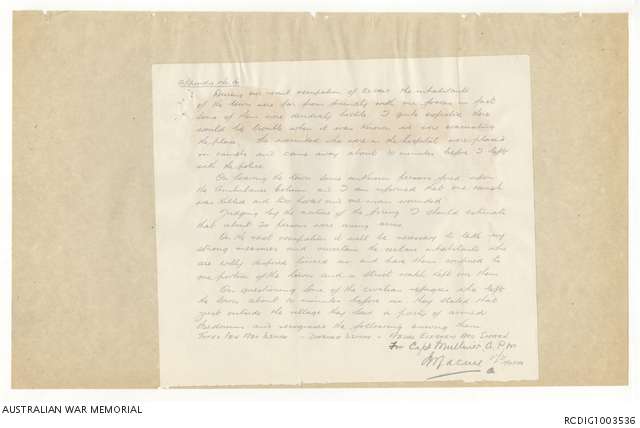 Appendix No.
During our recent occupation of Es Salt the inhabitants
of the town were far from friendly with our forces in fact
some of them were decidedly hostile. I quite expected there
would be trouble when it was known we were evacuating
the place. The wounded who were in the hospital were placed
on camels and came away about minutes before I left
with the police.
On leaving the town some unknown persons fired upon
the Ambulance column and I am informed that one camel
was killed and two horses and one man wounded.
Judging by the nature of the firing I should estimate
that about 20 persons were using arms.
On the next occupation it will be necessary to take very
strong measures and ascertain the certain inhabitants who
are well disposed toward us and have them confined to
one portion of the town and a strict watch kept on them.
On questioning some of the civilian refugees who left
the town about minutes before us they stated that
just outside the village they saw a party of armed
Bedouins and recognised the following among them
For Capt A.P.M.